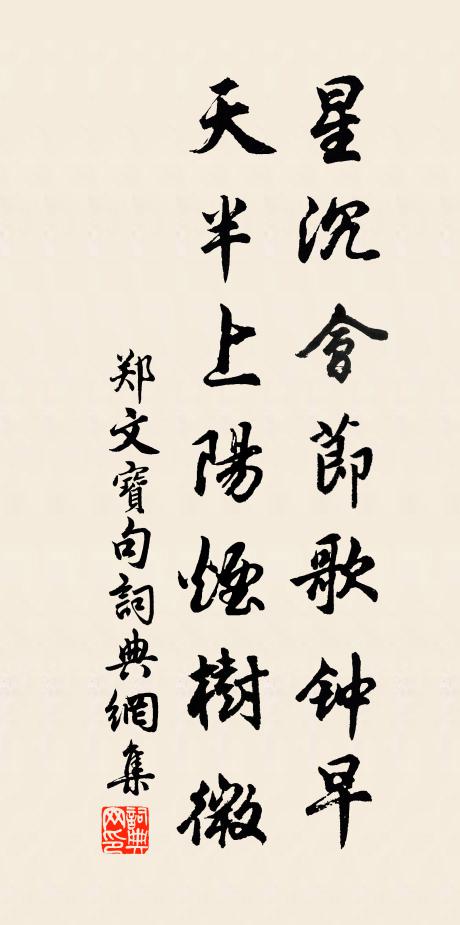 星沉會節歌钟早
天半上陽煙樹微
郑文寶句詞典網集
詞典网印